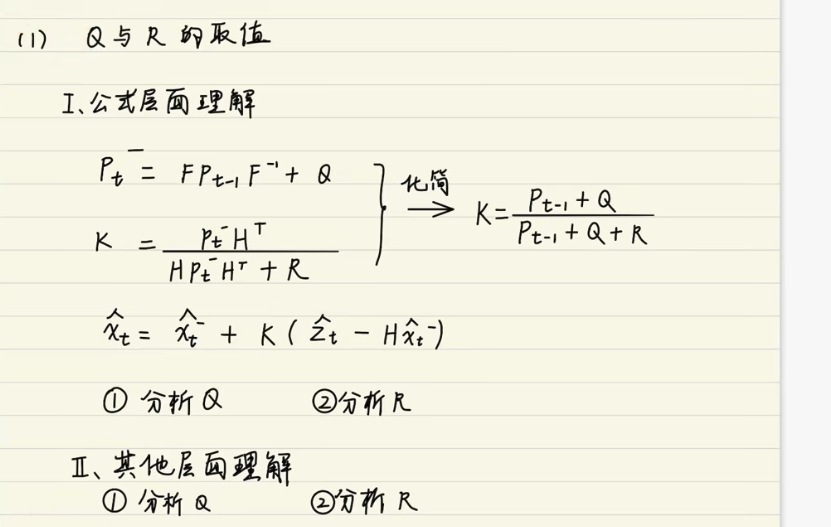 (1) Q与R的取值
I、公式层面理解
P_t^- = F P_{t-1} F^{-1} + Q
K = \frac{P_t^- H^T}{H P_t^- H^T + R}
} 化简 → K = \frac{P_{t-1} + Q}{P_{t-1} + Q + R}
\hat{x}_t = \hat{x}_t^- + K ( \hat{z}_t - H \hat{x}_t^- )
① 分析Q ②分析R
II、其他层面理解
① 分析Q ②分析R